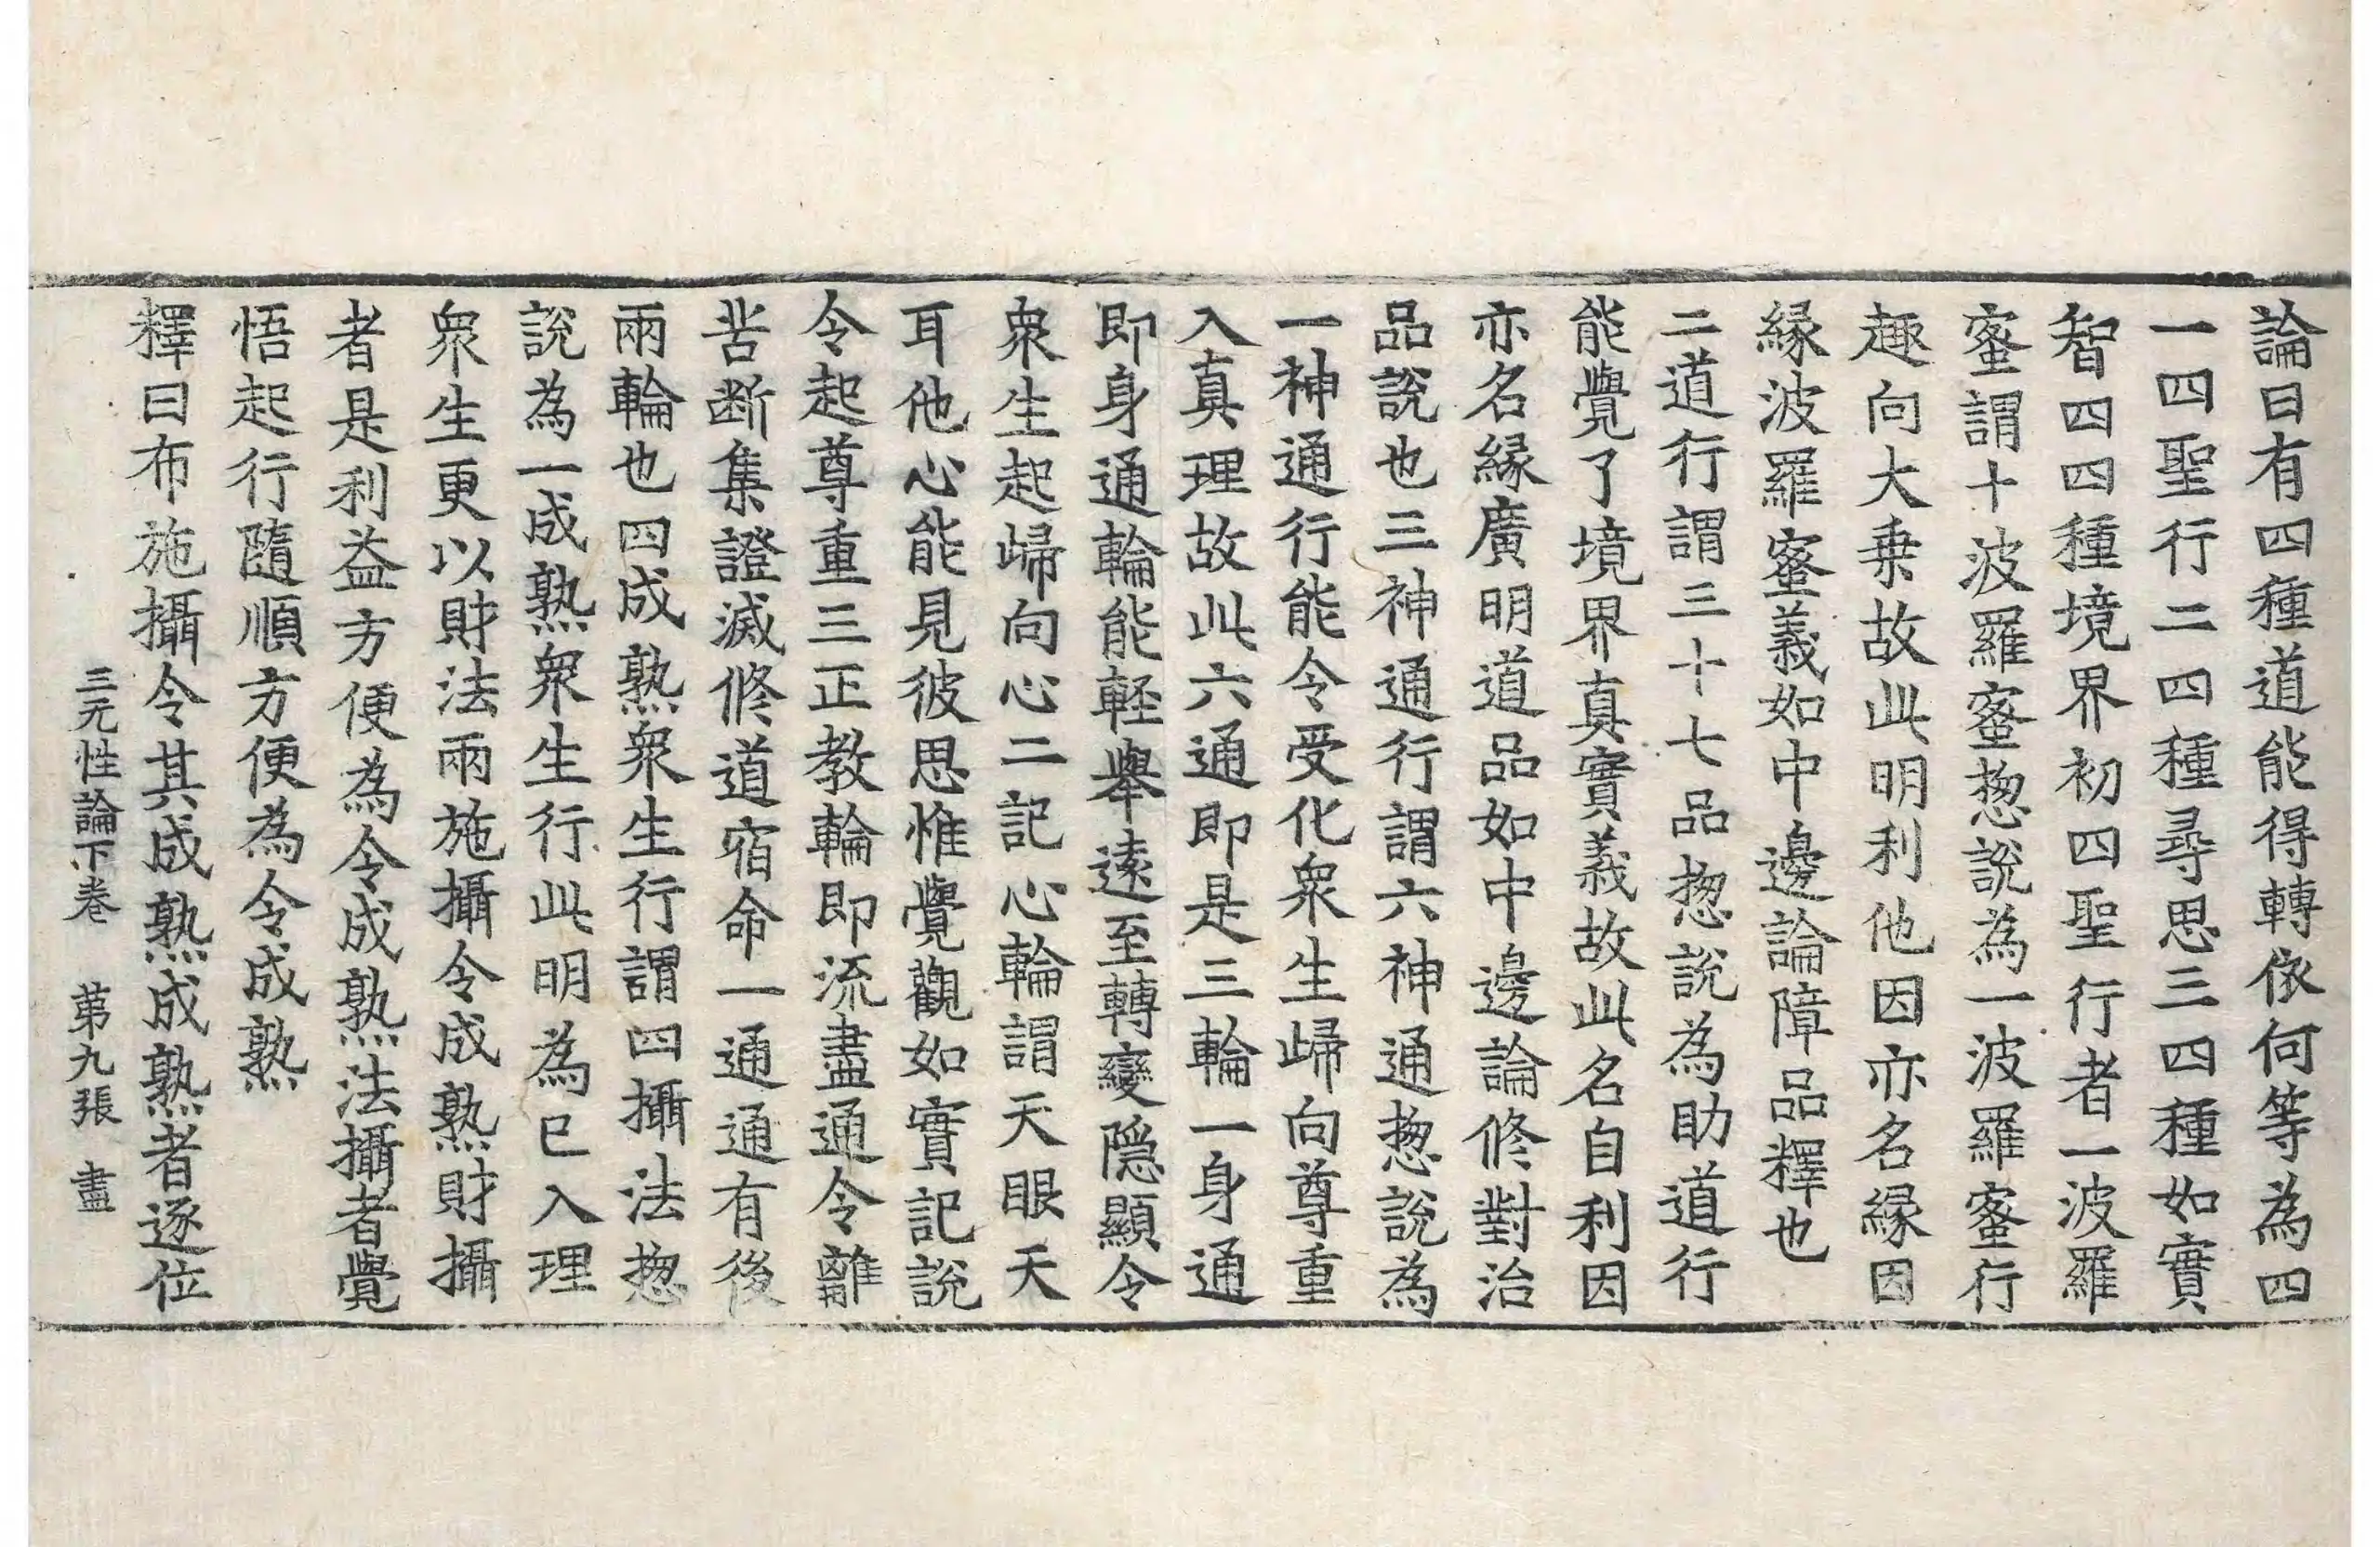 論曰有四種道能得轉依何等為四
一四聖行二四種尋思三四種如實
智四四種境界初四聖行者一波羅
蜜謂十波羅蜜惣說為一波羅蜜行
趣向大乗故此明利他因亦名縁因
縁波羅蜜義如中邊論障品釋也
二道行謂三十七品惣說為助道行
能覺了境界真實義故此名自利因
亦名縁廣明道品如中邊論修對治
品說也三神通行謂六神通惣說為
一神通行能令受化衆生歸向尊重
入真理故此六通即是三輪一身通
即身通輪能軽舉遠至轉變隠顯令
衆生起歸向心二記心輪謂天眼天
耳他心能見彼思惟覺觀如實記說
令起尊重三正教輪即流盡通令離
苦断集證滅修道宿命一通通有後
兩輪也四成熟衆生行謂四攝法惣
說為一成熟衆生行此明為已入理
衆生更以財法兩施攝令成熟財攝
者是利益方便為令成熟法攝者覺
悟起行隨順方便為令成熟
釋曰布施攝令其成熟成熟者逐位
三无性論下卷　第九張　盡